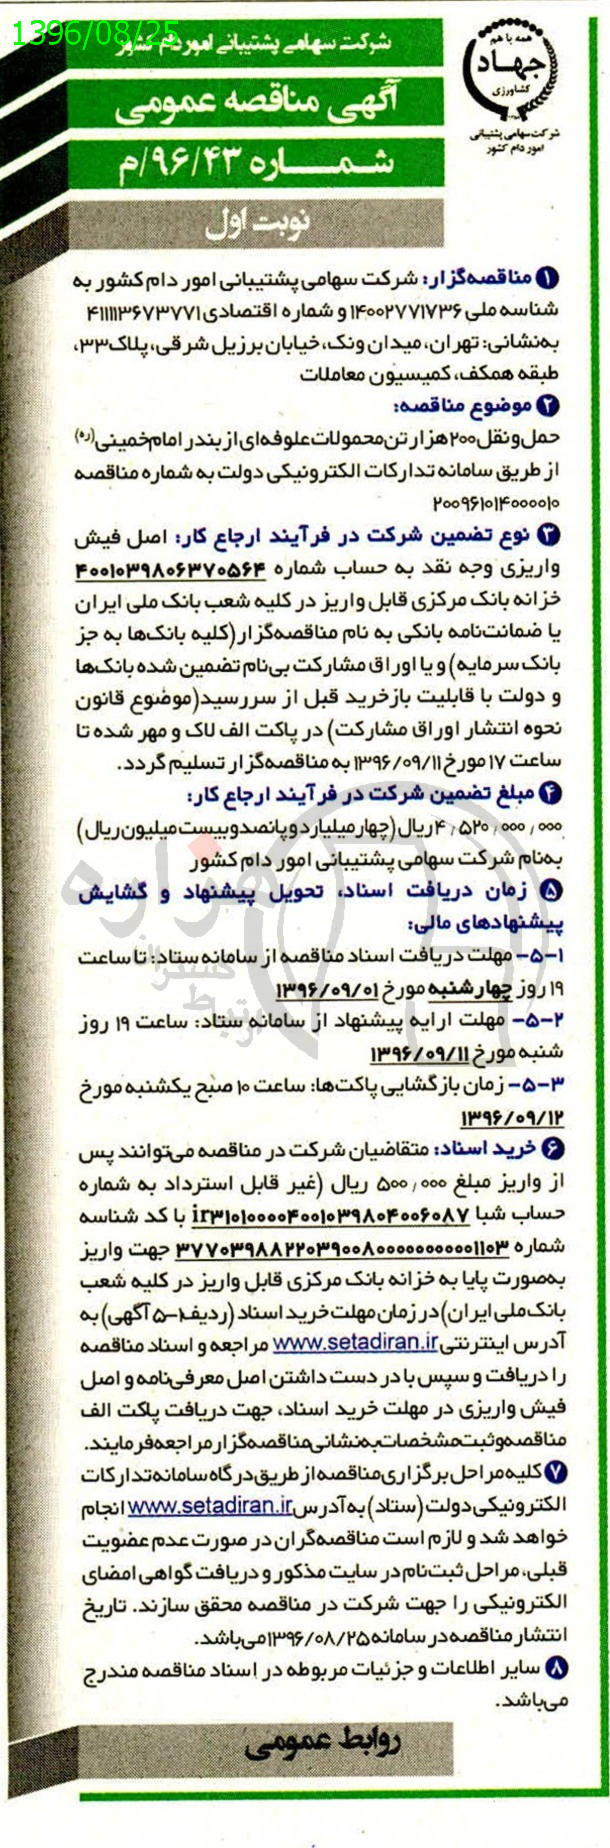 1396/08/25
شرکت سهامی پشتیبانی امور دام کشور
همه با هم
جهاد
کشاورزی
شرکت سهامی پشتیبانی
امور دام کشور
آگهی مناقصه عمومی
شمـــــاره ۹۶/۴۳/م
نوبت اول
۱ مناقصه‌گزار: شرکت سهامی پشتیبانی امور دام کشور به
شناسه ملی ۱۴۰۰۲۷۷۱۷۳۶ و شماره اقتصادی ۴۱۱۱۱۳۶۷۳۷۷۱
به‌نشانی: تهران، میدان ونک، خیابان برزیل شرقی، پلاک ۳۳،
طبقه همکف، کمیسیون معاملات
۲ موضوع مناقصه:
حمل و نقل ۲۰۰ هزار تن محصولات علوفه‌ای از بندر امام‌خمینی (ره)
از طریق سامانه تدارکات الکترونیکی دولت به شماره مناقصه
۲۰۰۹۶۱۰۱۴۰۰۰۰۱۰
۳ نوع تضمین شرکت در فرآیند ارجاع کار: اصل فیش
واریزی وجه نقد به حساب شماره ۴۰۰۱۰۳۹۸۰۶۳۷۰۵۶۴
خزانه بانک مرکزی قابل واریز در کلیه شعب بانک ملی ایران
یا ضمانت‌نامه بانکی به نام مناقصه‌گزار (کلیه بانک‌ها به جز
بانک سرمایه) و یا اوراق مشارکت بی‌نام تضمین شده بانک‌ها
و دولت با قابلیت بازخرید قبل از سررسید (موضوع قانون
نحوه انتشار اوراق مشارکت) در پاکت الف لاک و مهر شده تا
ساعت ۱۷ مورخ ۱۳۹۶/۰۹/۱۱ به مناقصه‌گزار تسلیم گردد.
۴ مبلغ تضمین شرکت در فرآیند ارجاع کار:
۴٫۵۲۰٫۰۰۰٫۰۰۰ ریال (چهار میلیارد و پانصد و بیست میلیون ریال)
به‌نام شرکت سهامی پشتیبانی امور دام کشور
۵ زمان دریافت اسناد، تحویل پیشنهاد و گشایش
پیشنهادهای مالی:
۵-۱- مهلت دریافت اسناد مناقصه از سامانه ستاد: تا ساعت
۱۹ روز چهارشنبه مورخ ۱۳۹۶/۰۹/۰۱
۵-۲- مهلت ارایه پیشنهاد از سامانه ستاد: ساعت ۱۹ روز
شنبه مورخ ۱۳۹۶/۰۹/۱۱
۵-۳- زمان بازگشایی پاکت‌ها: ساعت ۱۰ صبح یکشنبه مورخ
۱۳۹۶/۰۹/۱۲
۶ خرید اسناد: متقاضیان شرکت در مناقصه می‌توانند پس
از واریز مبلغ ۵۰۰٫۰۰۰ ریال (غیر قابل استرداد به شماره
حساب شبا ir۳۱۰۱۰۰۰۰۴۰۰۱۰۳۹۸۰۴۰۰۶۰۸۷ با کد شناسه
شماره ۳۷۷۰۳۹۸۸۲۲۰۳۹۰۰۸۰۰۰۰۰۰۰۰۰۰۱۱۰۳ جهت واریز
به‌صورت پایا به خزانه بانک مرکزی قابل واریز در کلیه شعب
بانک ملی ایران) در زمان مهلت خرید اسناد (ردیف ۱-۵ آگهی) به
آدرس اینترنتی www.setadiran.ir مراجعه و اسناد مناقصه
را دریافت و سپس با در دست داشتن اصل معرفی‌نامه و اصل
فیش واریزی در مهلت خرید اسناد، جهت دریافت پاکت الف
مناقصه و ثبت مشخصات به‌نشانی مناقصه‌گزار مراجعه فرمایند.
۷ کلیه مراحل برگزاری مناقصه از طریق درگاه سامانه تدارکات
الکترونیکی دولت (ستاد) به آدرس www.setadiran.ir انجام
خواهد شد و لازم است مناقصه‌گران در صورت عدم عضویت
قبلی، مراحل ثبت نام در سایت مذکور و دریافت گواهی امضای
الکترونیکی را جهت شرکت در مناقصه محقق سازند. تاریخ
انتشار مناقصه در سامانه ۱۳۹۶/۰۸/۲۵ می‌باشد.
۸ سایر اطلاعات و جزئیات مربوطه در اسناد مناقصه مندرج
می‌باشد.
روابط عمومی